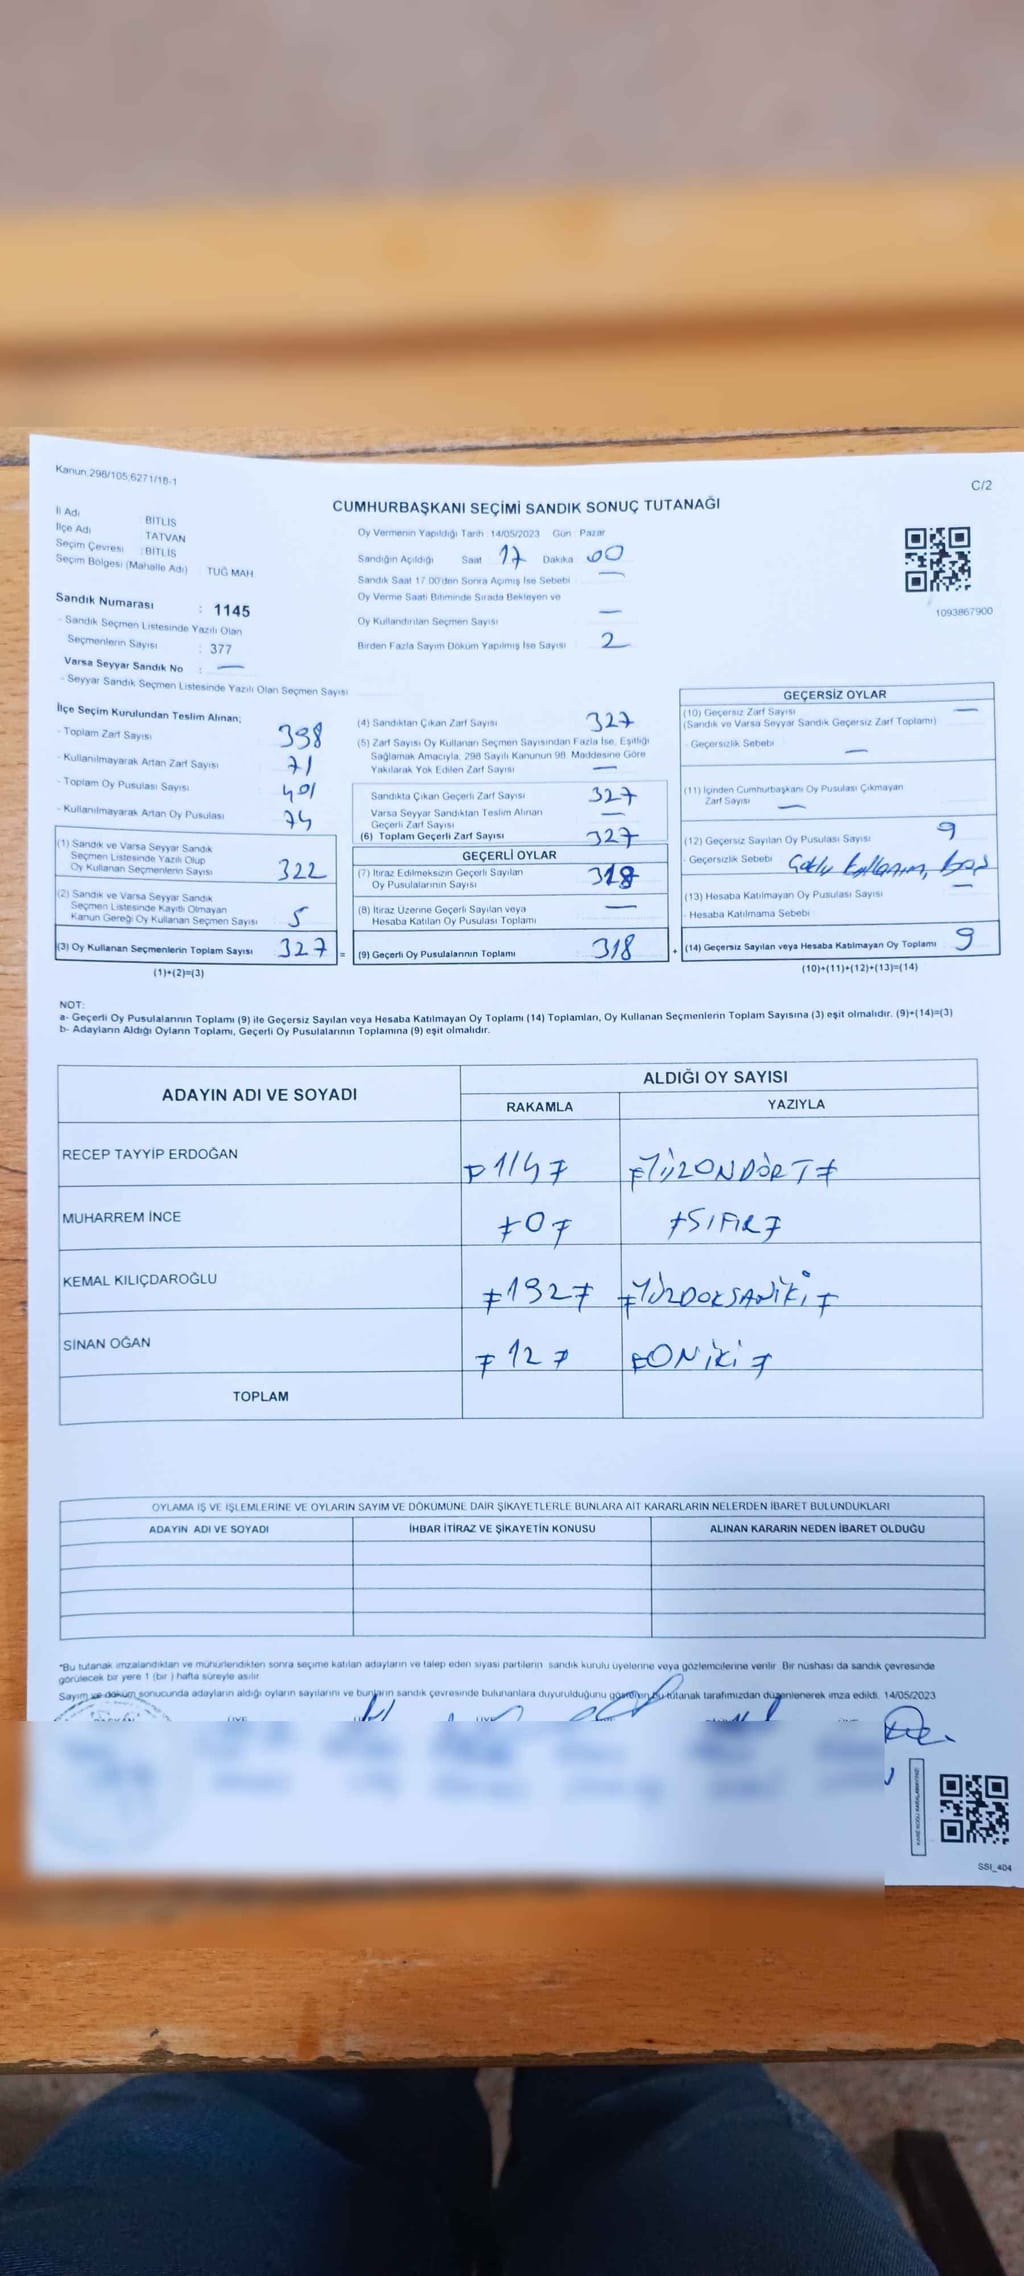 Kanun:298/105,6271/18-1
C/2
CUMHURBAŞKANI SEÇİMİ SANDIK SONUÇ TUTANAĞI
İl Adı BİTLİS
İlçe Adı TATVAN
Seçim Çevresi : BİTLİS
Seçim Bölgesi (Mahalle Adı) TUĞ MAH
Sandık Numarası : 1145
- Sandık Seçmen Listesinde Yazılı Olan
Seçmenlerin Sayısı : 377
Varsa Seyyar Sandık No : —
- Seyyar Sandık Seçmen Listesinde Yazılı Olan Seçmen Sayısı
Oy Vermenin Yapıldığı Tarih : 14/05/2023 Gün : Pazar
Sandığın Açıldığı Saat 17 Dakika 00
Sandık Saat 17.00'den Sonra Açımış İse Sebebi —
Oy Verme Saati Bitiminde Sırada Bekleyen ve
Oy Kullandırılan Seçmen Sayısı —
Birden Fazla Sayım Döküm Yapılmış İse Sayısı 2
1093867900
İlçe Seçim Kurulundan Teslim Alınan;
- Toplam Zarf Sayısı 398
- Kullanılmayarak Artan Zarf Sayısı 71
- Toplam Oy Pusulası Sayısı 401
- Kullanılmayarak Artan Oy Pusulası 74
(1) Sandık ve Varsa Seyyar Sandık
Seçmen Listesinde Yazılı Olup
Oy Kullanan Seçmenlerin Sayısı 322
(2) Sandık ve Varsa Seyyar Sandık
Seçmen Listesinde Kayıtlı Olmayan
Kanun Gereği Oy Kullanan Seçmen Sayısı 5
(3) Oy Kullanan Seçmenlerin Toplam Sayısı 327 =
(1)+(2)=(3)
(4) Sandıktan Çıkan Zarf Sayısı 327
(5) Zarf Sayısı Oy Kullanan Seçmen Sayısından Fazla İse, Eşitliği
Sağlamak Amacıyla, 298 Sayılı Kanunun 98. Maddesine Göre
Yakılarak Yok Edilen Zarf Sayısı —
Sandıkta Çıkan Geçerli Zarf Sayısı 327
Varsa Seyyar Sandıktan Teslim Alınan
Geçerli Zarf Sayısı —
(6) Toplam Geçerli Zarf Sayısı 327
GEÇERLİ OYLAR
(7) İtiraz Edilmeksizin Geçerli Sayılan
Oy Pusulalarının Sayısı 318
(8) İtiraz Üzerine Geçerli Sayılan veya
Hesaba Katılan Oy Pusulası Toplamı —
(9) Geçerli Oy Pusulalarının Toplamı 318 +
GEÇERSİZ OYLAR
(10) Geçersiz Zarf Sayısı —
(Sandık ve Varsa Seyyar Sandık Geçersiz Zarf Toplamı)
- Geçersizlik Sebebi —
(11) İçinden Cumhurbaşkanı Oy Pusulası Çıkmayan
Zarf Sayısı —
(12) Geçersiz Sayılan Oy Pusulası Sayısı 9
- Geçersizlik Sebebi Çoklu kullanım, Boş
(13) Hesaba Katılmayan Oy Pusulası Sayısı —
- Hesaba Katılmama Sebebi
(14) Geçersiz Sayılan veya Hesaba Katılmayan Oy Toplamı 9
(10)+(11)+(12)+(13)=(14)
NOT:
a- Geçerli Oy Pusulalarının Toplamı (9) ile Geçersiz Sayılan veya Hesaba Katılmayan Oy Toplamı (14) Toplamları, Oy Kullanan Seçmenlerin Toplam Sayısına (3) eşit olmalıdır. (9)+(14)=(3)
b- Adayların Aldığı Oyların Toplamı, Geçerli Oy Pusulalarının Toplamına (9) eşit olmalıdır.
ADAYIN ADI VE SOYADI ALDIĞI OY SAYISI
RAKAMLA YAZIYLA
RECEP TAYYİP ERDOĞAN 114 YÜZONDÖRT
MUHARREM İNCE 0 SIFIR
KEMAL KILIÇDAROĞLU 192 YÜZDOKSANİKİ
SİNAN OĞAN 12 ONİKİ
TOPLAM
OYLAMA İŞ VE İŞLEMLERİNE VE OYLARIN SAYIM VE DÖKÜMÜNE DAİR ŞİKAYETLERLE BUNLARA AİT KARARLARIN NELERDEN İBARET BULUNDUKLARI
ADAYIN ADI VE SOYADI İHBAR İTİRAZ VE ŞİKAYETİN KONUSU ALINAN KARARIN NEDEN İBARET OLDUĞU
*Bu tutanak imzalandıktan ve mühürlendikten sonra seçime katılan adayların ve talep eden siyasi partilerin sandık kurulu üyelerine veya gözlemcilerine verilir. Bir nüshası da sandık çevresinde
görülecek bir yere 1 (bir ) hafta süreyle asılır.
Sayım ve döküm sonucunda adayların aldığı oyların sayılarını ve bunların sandık çevresinde bulunanlara duyurulduğunu gösteren bu tutanak tarafımızdan düzenlenerek imza edildi. 14/05/2023
SSI_404